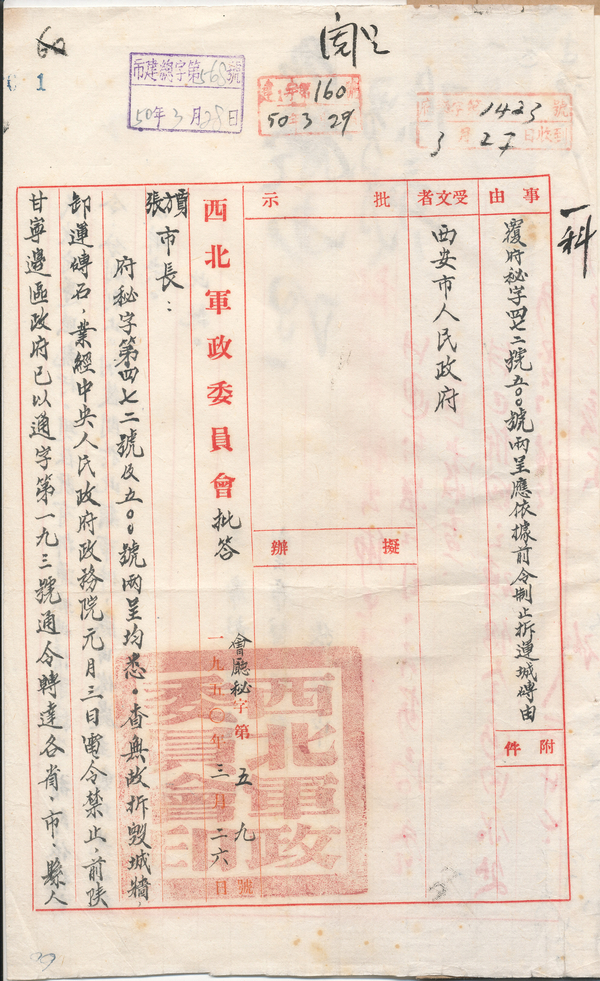 1
閱已
市建瀕字第568號
50年3月28日
字第160
50 3 29
字第1423號
3月27日收到
一科
事由
覆府秘字四七二號五〇〇號兩呈應依據前令制止拆運城磚由
附件
受文者
西安市人民政府
批示
擬辦
西北軍政委員會批答
會廳秘字第五九號
一九五〇年三月二六日
西北軍政委員會印
張方賈市長：
府秘字第四七二號及五〇〇號兩呈均悉。查無故拆毀城牆，
卸運磚石，業經中央人民政府政務院元月三日電令禁止，前陝
甘寧邊區政府已以通字第一九三號通令轉達各省、市、縣人